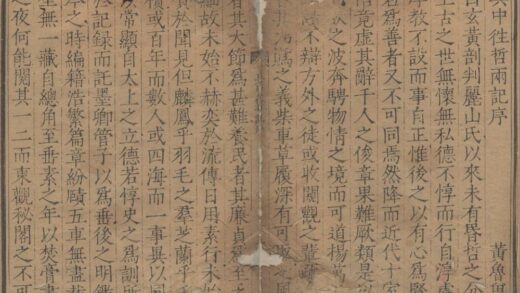 中徃哲兩記序
黃魯
自玄黃剖判麗山氏以來未有昏哲之
上古之世無懷無私德不惇而行自淳
教不設而事自正惟後之以有心為
名為善者又不可同焉然降而近代十室
竟虛其辭千人之俊章果難厭類是
之波奔騁物情之境而可道揚
不辯方外之徒或收闤闠之
之義柴車草履深有可
者其大節為甚難養民者其廉貞
故未始不赫奕於流傳日用素行未始
於聞見但麟鳳乎羽毛之羣芝蘭乎
積或百年而數人或四海而一事與以同
常顯自太上之立德若惇史之為訓
記録而託墨卿管子以為垂後之明
本之時編籍浩繁篇章紛賾五車無盡
至無一藏自總角至垂素之年以焚膏
之夜何能閱其一二而東觀秘閣之不可